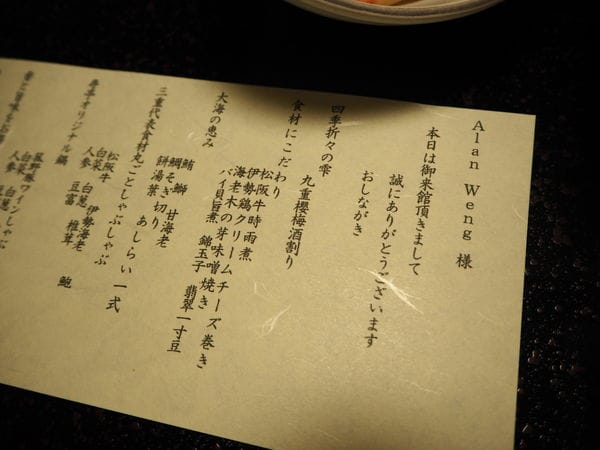 Alan Weng 様
本日は御来館頂きまして
誠にありがとうございます
おしながき
四季折々の雫
九重櫻梅酒割り
食材にこだわり
松阪牛時雨煮
伊勢鶏クリームチーズ巻き
海老木の芽味噌焼き
バイ貝旨煮 錦玉子 翡翠一寸豆
大海の恵み
鮪 鰤 甘海老
鯛そぎ切り
餅湯葉 あしらい一式
三重代表食材丸ごとしゃぶしゃぶ
松阪牛 伊勢海老 鮑
白菜 白葱 椎茸
人参 豆富
オリジナル鍋
菰野豚ワインしゃぶ
白菜 白葱
人参